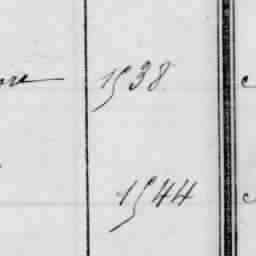 1538
1544